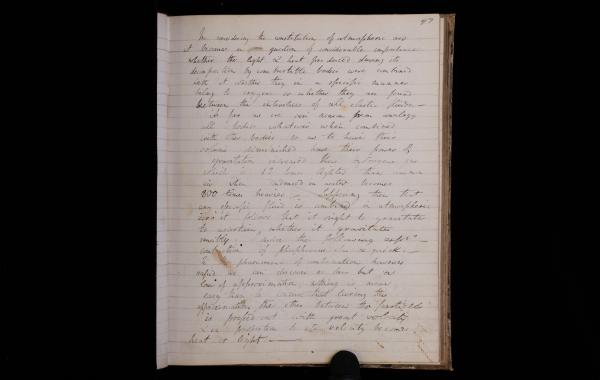 47
In considering the constitution of atmospheric air
it becomes a question of considerable importance
whether the light & heat produced during its
decomposition by combustible bodies were combined
with it whether they in a specific manner
belong to oxygen or whether they are found
between the interstices of all elastic fluids —
As far as we can reason from analogy
all bodies whatever when combined
with other bodies so as to have their
volume diminished have their power of
gravitation increased thus hydrogene gas
which is 12 times lighter than common
air when condensed in water becomes
800 times heavier — Supposing then that
any specific fluid is combined in atmospheric
air it follows that it ought to gravitate
to ascertain whether it gravitates
I made the following exp
combustion of phosphorus
In phenomena of combustion however
rapid we can discover no law but a
law of approximation nothing is more
easy than to conceive that during this
approximation the ether between the particles
is pressed out with great velocity
& in proportion to its velocity becomes
heat or light —